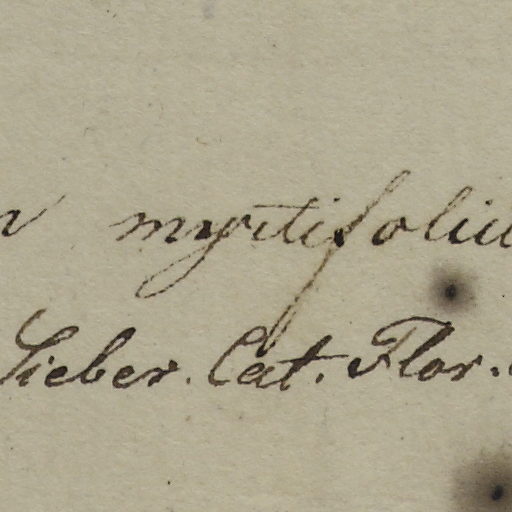 myrtifoliu
Sieber. Cat. Flor.